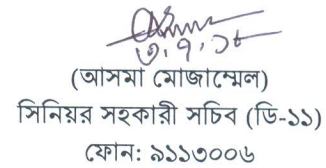 ৩.৭.১৮
(আসমা মোজাম্মেল)
সিনিয়র সহকারী সচিব (ডি-১১)
ফোন: ৯১১৩০০৬